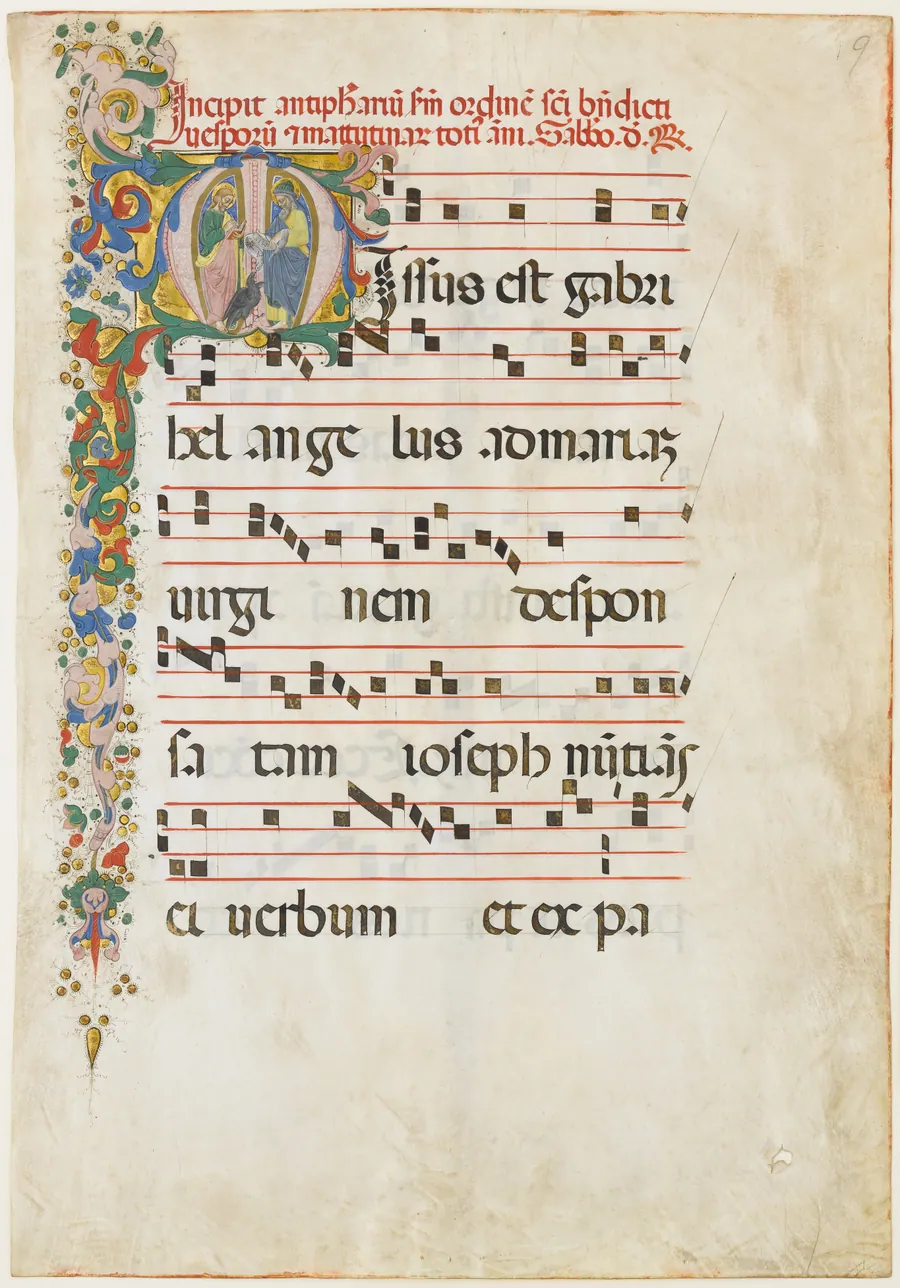 Incipit antiphariū scdm ordinē sci bn̄dicti
uesporū ⁊ mattutinaꝝ totī āni. Sabbo. d. R.
MIssus est gabri
hel ange lus admariaꝫ
uirgi nem despon
sa tam ioseph nūtiās
ei uerbum et ex pa
9